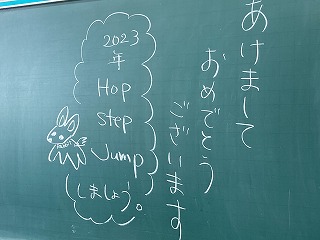 あけまして
おめでとう
ございます
2023
年
Hop
step
Jump
しましょう。